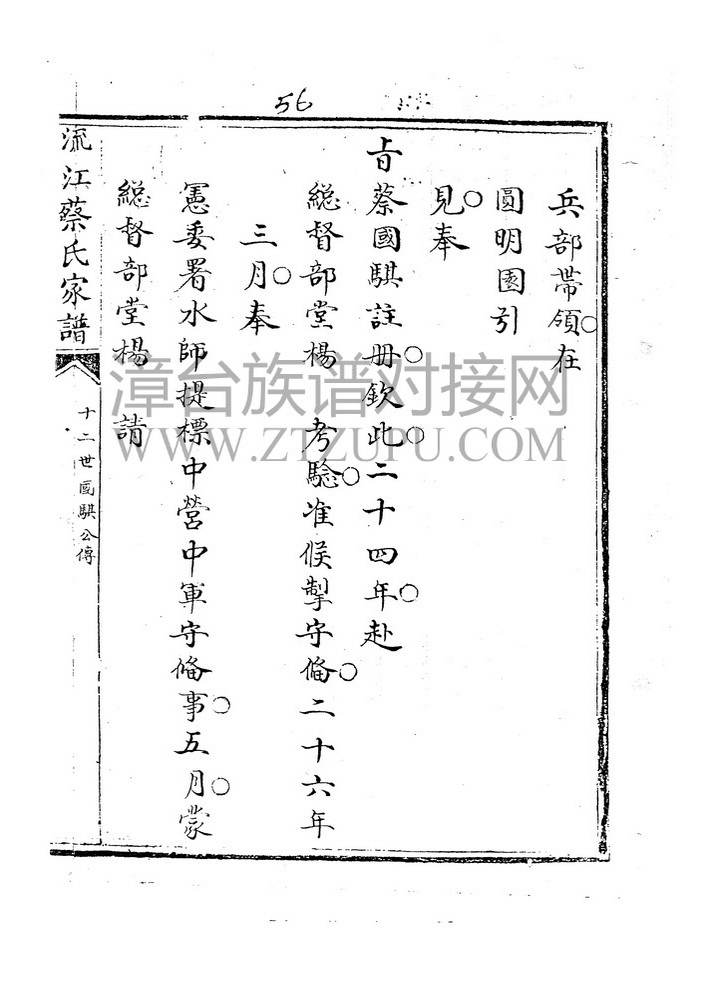 56
兵部帶領○在
圓明園引
見○奉
旨蔡國騏註冊○欽此○二十四年○赴
總督部堂楊 考驗○准候掣守俻○二十六年
三月○奉
憲委署水師提標中營中軍守俻事○五月○蒙
總督部堂楊 請
流江蔡氏家譜
十二世國騏公傳
漳台族谱对接网
WWW.ZTZUPU.COM